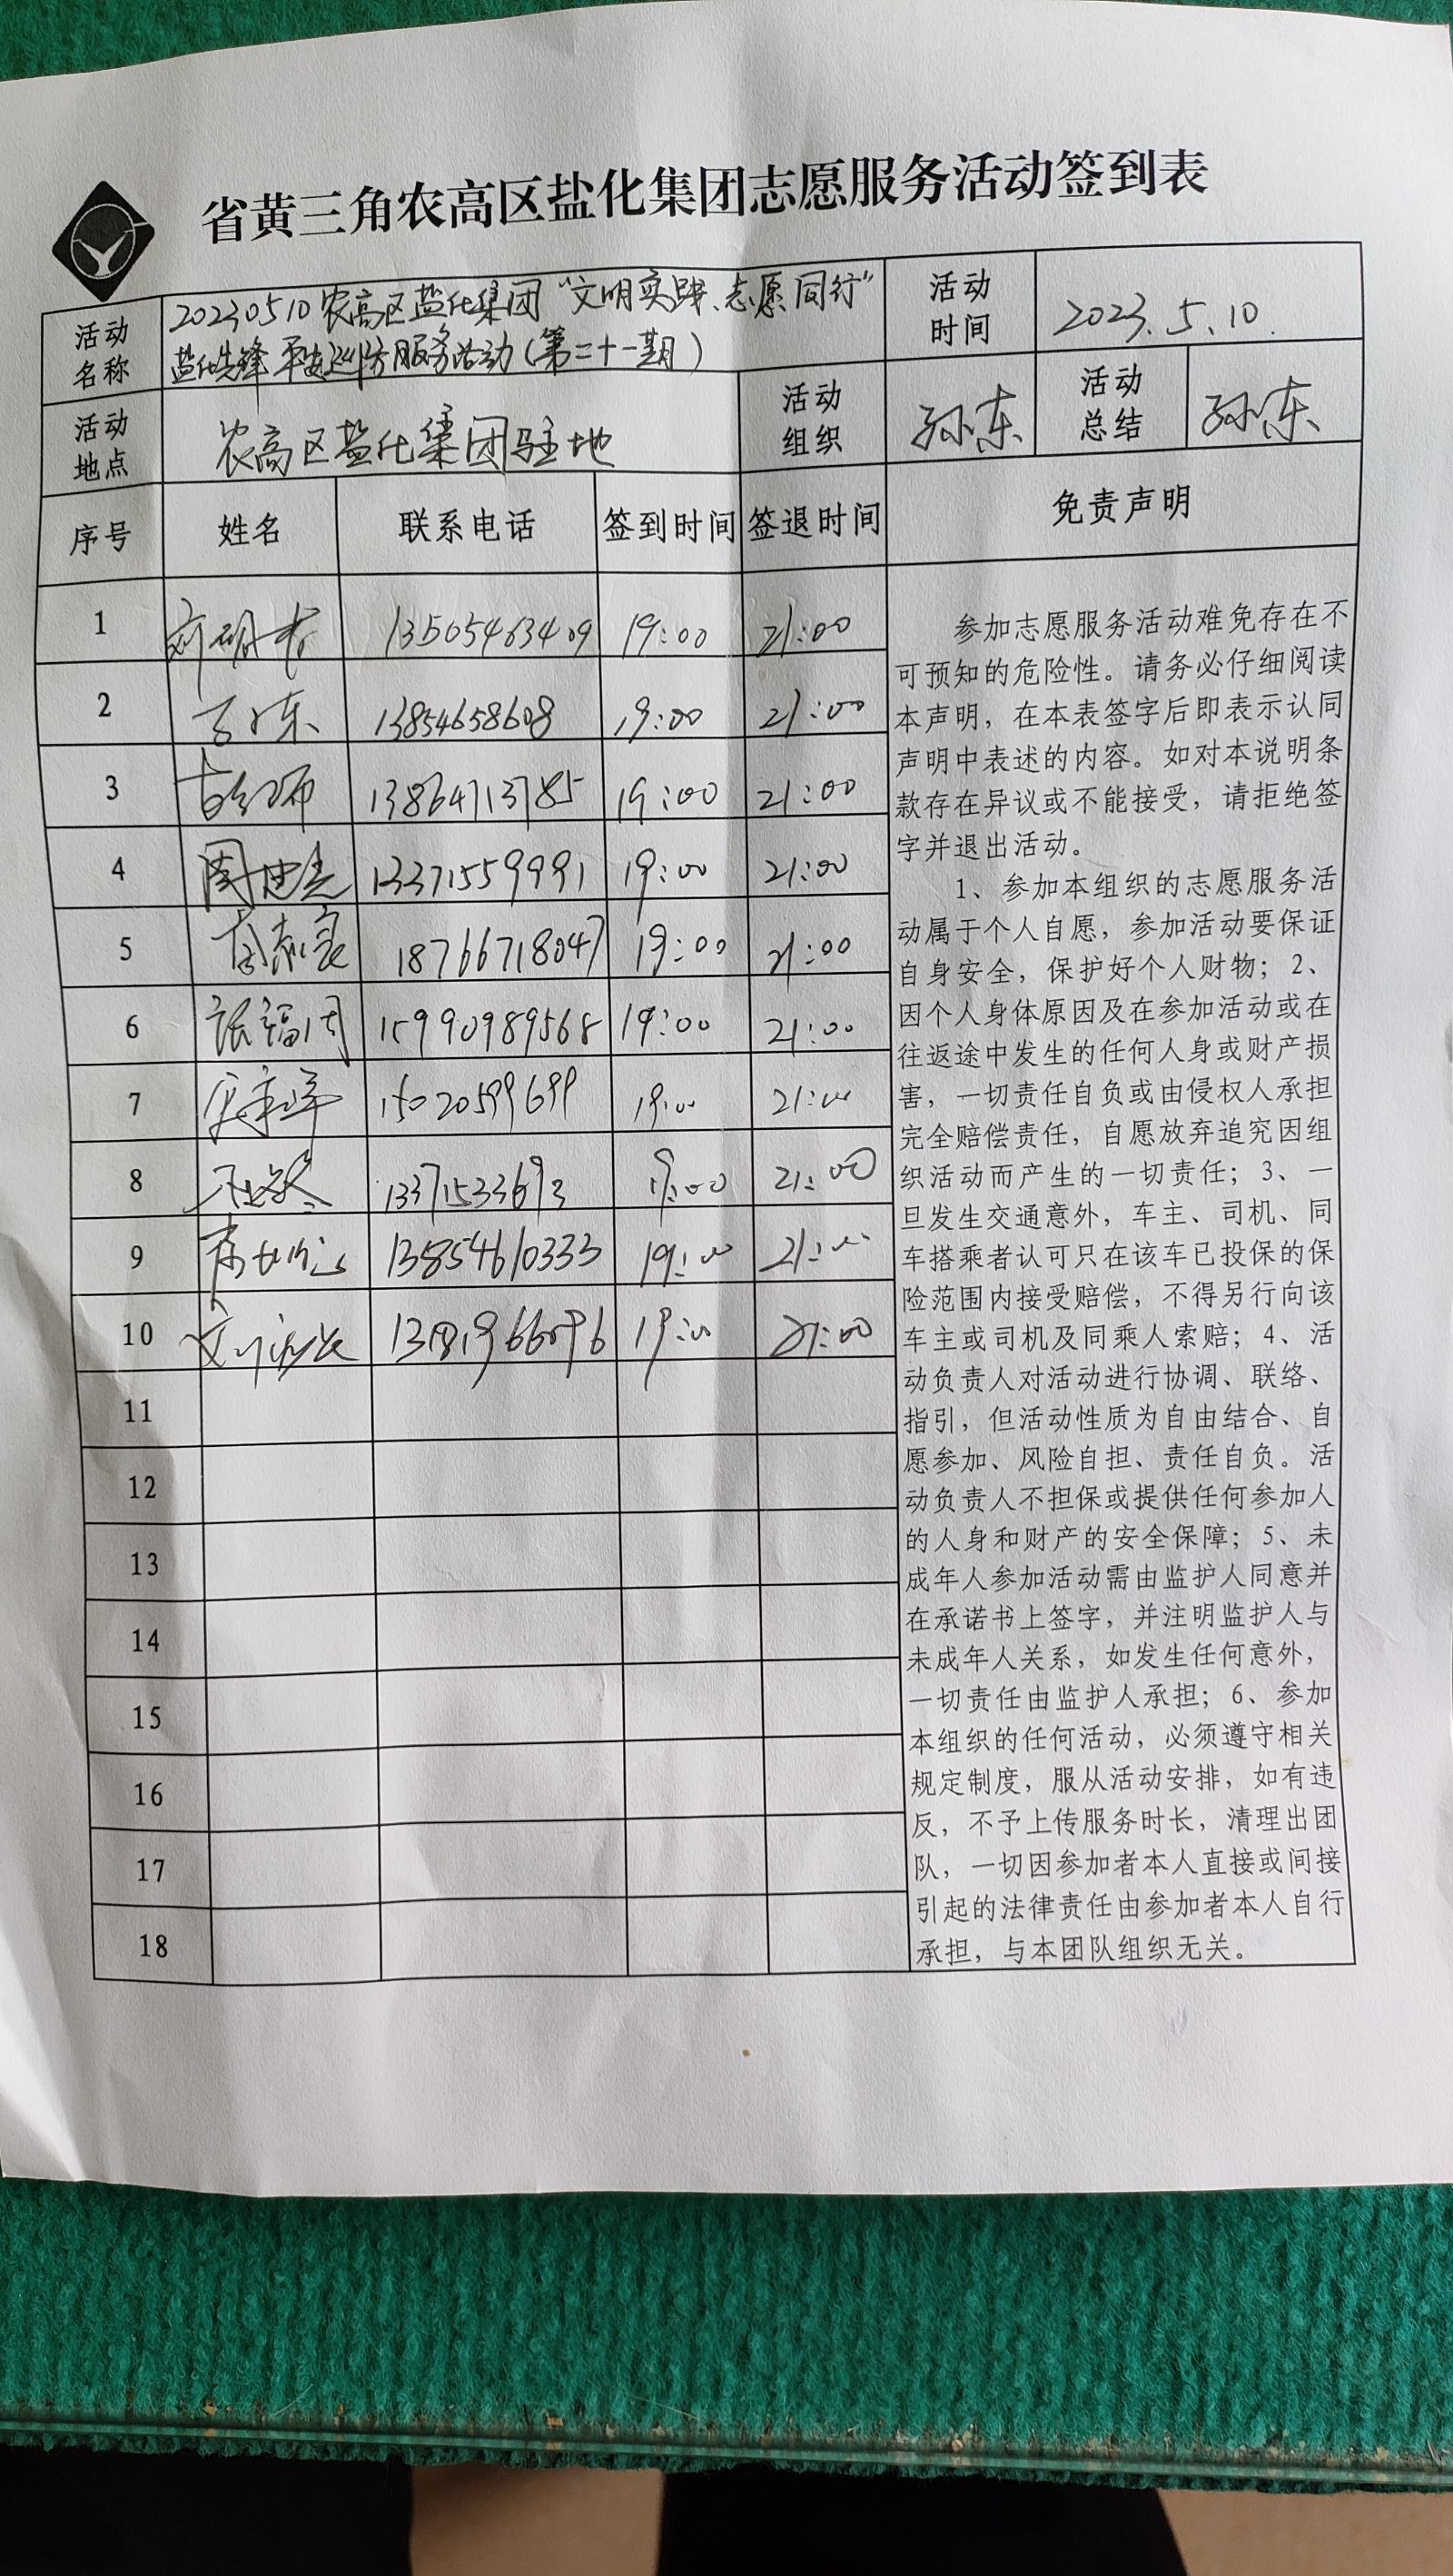 省黄三角农高区盐化集团志愿服务活动签到表
活动名称 20230510农高区盐化集团“文明实践、志愿同行”
盐化先锋 平安巡防服务活动(第二十一期)
活动时间 2023.5.10.
活动地点 农高区盐化集团驻地
活动组织 孙东
活动总结 孙东
序号 姓名 联系电话 签到时间 签退时间 免责声明
1 13505463409 19:00 21:00
2 孙东 13854658608 19:00 21:00
3 13864713785 19:00 21:00
4 13371559991 19:00 21:00
5 18766718047 19:00 21:00
6 张福周 15990989568 19:00 21:00
7 15020599699 19:00 21:00
8 13371533693 19:00 21:00
9 13854610333 19:00 21:00
10 19:00 21:00
11
12
13
14
15
16
17
18
参加志愿服务活动难免存在不
可预知的危险性。请务必仔细阅读
本声明，在本表签字后即表示认同
声明中表述的内容。如对本说明条
款存在异议或不能接受，请拒绝签
字并退出活动。
1、参加本组织的志愿服务活
动属于个人自愿，参加活动要保证
自身安全，保护好个人财物；2、
因个人身体原因及在参加活动或在
往返途中发生的任何人身或财产损
害，一切责任自负或由侵权人承担
完全赔偿责任，自愿放弃追究因组
织活动而产生的一切责任；3、一
旦发生交通意外，车主、司机、同
车搭乘者认可只在该车已投保的保
险范围内接受赔偿，不得另行向该
车主或司机及同乘人索赔；4、活
动负责人对活动进行协调、联络、
指引，但活动性质为自由结合、自
愿参加、风险自担、责任自负。活
动负责人不担保或提供任何参加人
的人身和财产的安全保障；5、未
成年人参加活动需由监护人同意并
在承诺书上签字，并注明监护人与
未成年人关系，如发生任何意外，
一切责任由监护人承担；6、参加
本组织的任何活动，必须遵守相关
规定制度，服从活动安排，如有违
反，不予上传服务时长，清理出团
队，一切因参加者本人直接或间接
引起的法律责任由参加者本人自行
承担，与本团队组织无关。